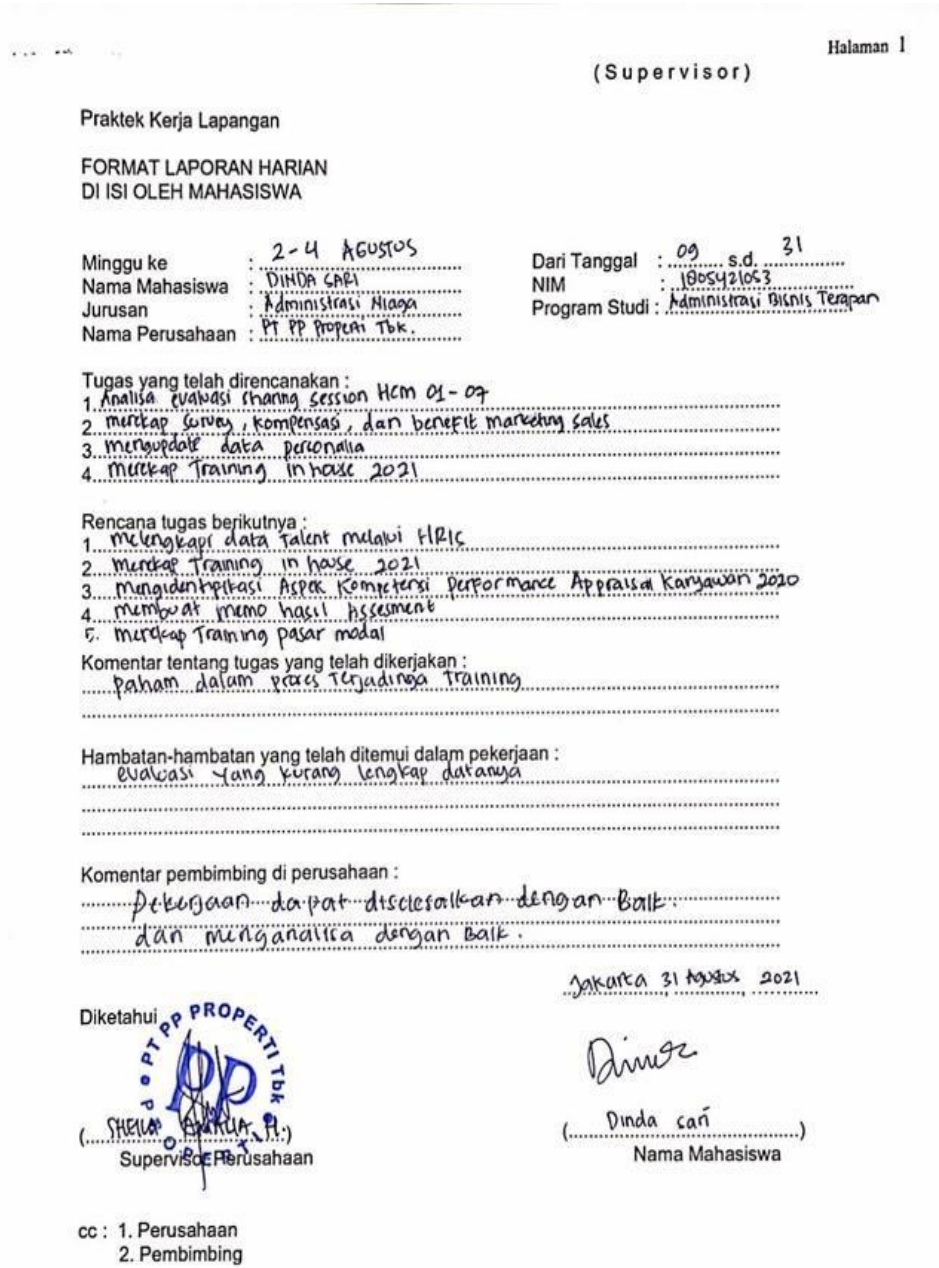 Halaman 1
(Supervisor)
Praktek Kerja Lapangan
FORMAT LAPORAN HARIAN
DI ISI OLEH MAHASISWA
Minggu ke : 2-4 AGUSTUS Dari Tanggal : 09 s.d. 31
Nama Mahasiswa : DINDA SARI NIM : 1805421053
Jurusan : Administrasi Niaga Program Studi : Administrasi Bisnis Terapan
Nama Perusahaan : PT PP Properti Tbk.
Tugas yang telah direncanakan :
1. Analisa evaluasi sharing session HCM 01-07
2. merekap survey, kompensasi, dan benefit marketing sales
3. mengupdate data personalia
4. merekap Training in house 2021
Rencana tugas berikutnya :
1. melengkapi data Talent melalui HRIS
2. merekap Training in house 2021
3. mengidentifikasi Aspek Kompetensi Performance Appraisal Karyawan 2020
4. membuat memo hasil Assesment
5. merekap Training pasar modal
Komentar tentang tugas yang telah dikerjakan :
paham dalam proses Terjadinga Training
Hambatan-hambatan yang telah ditemui dalam pekerjaan :
evaluasi yang kurang lengkap datanya
Komentar pembimbing di perusahaan :
Pekerjaan dapat diselesaikan dengan Baik.
dan menganalisa dengan Baik.
Jakarta 31 Agustus 2021
Diketahui
PT PP PROPERTI Tbk
PP
PROPERTI
(SHEILA AMALIA H.) (Dinda Sari)
Supervisor Perusahaan Nama Mahasiswa
cc : 1. Perusahaan
2. Pembimbing